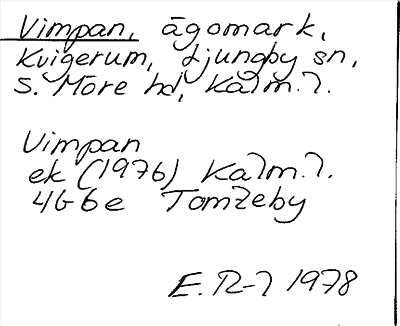 Vimpan, ägomark,
Kvigerum, Ljungby sn,
S. Möre hd, Kalm.l.
Vimpan
ek (1976) Kalm.l.
4G6e Tomteby
E.R-l 1978